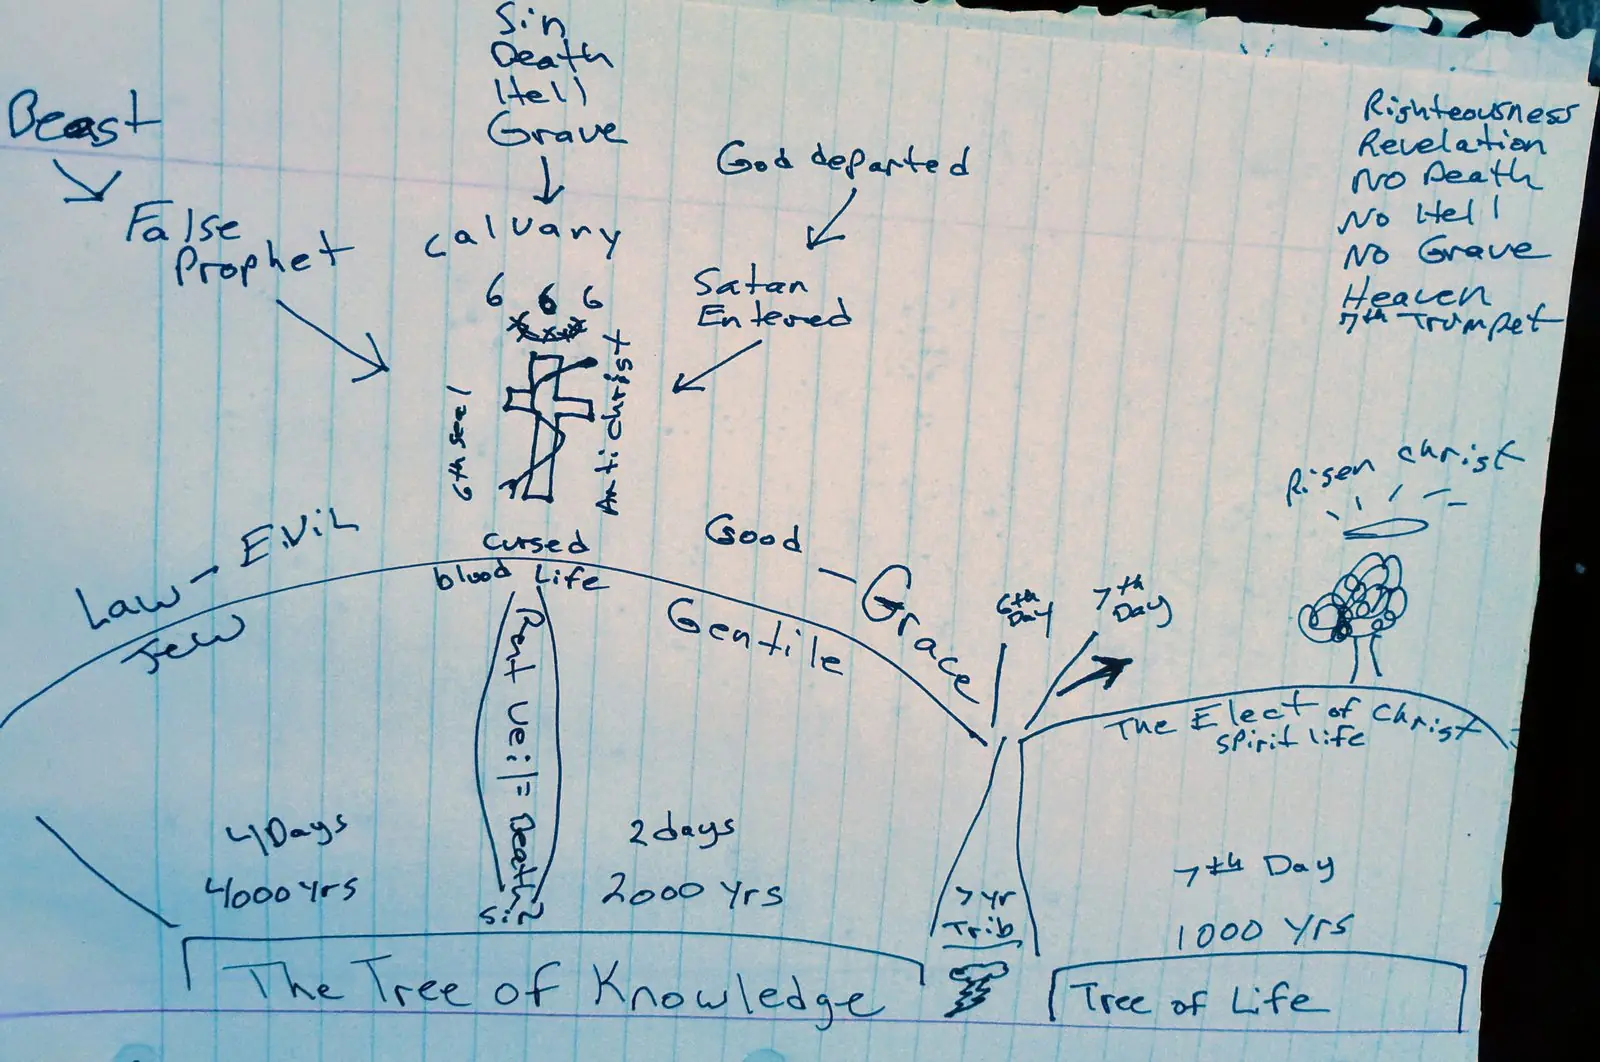 Sin
Death
Hell
Grave
Beast
False
Prophet
Calvary
God departed
Satan
Entered
6 6 6
6th seel
Antichrist
Righteousness
Revelation
No Death
No Hell
No Grave
Heaven
7th Trumpet
Risen Christ
Law - Evil
cursed
blood Life
Good - Grace
Jew
Gentile
6th
Day
7th
Day
The Elect of Christ
spirit life
Rent Veil = Death
4 Days
4000 yrs
2 days
2000 yrs
7 yr
Trib
7th Day
1000 yrs
The Tree of Knowledge
Tree of Life